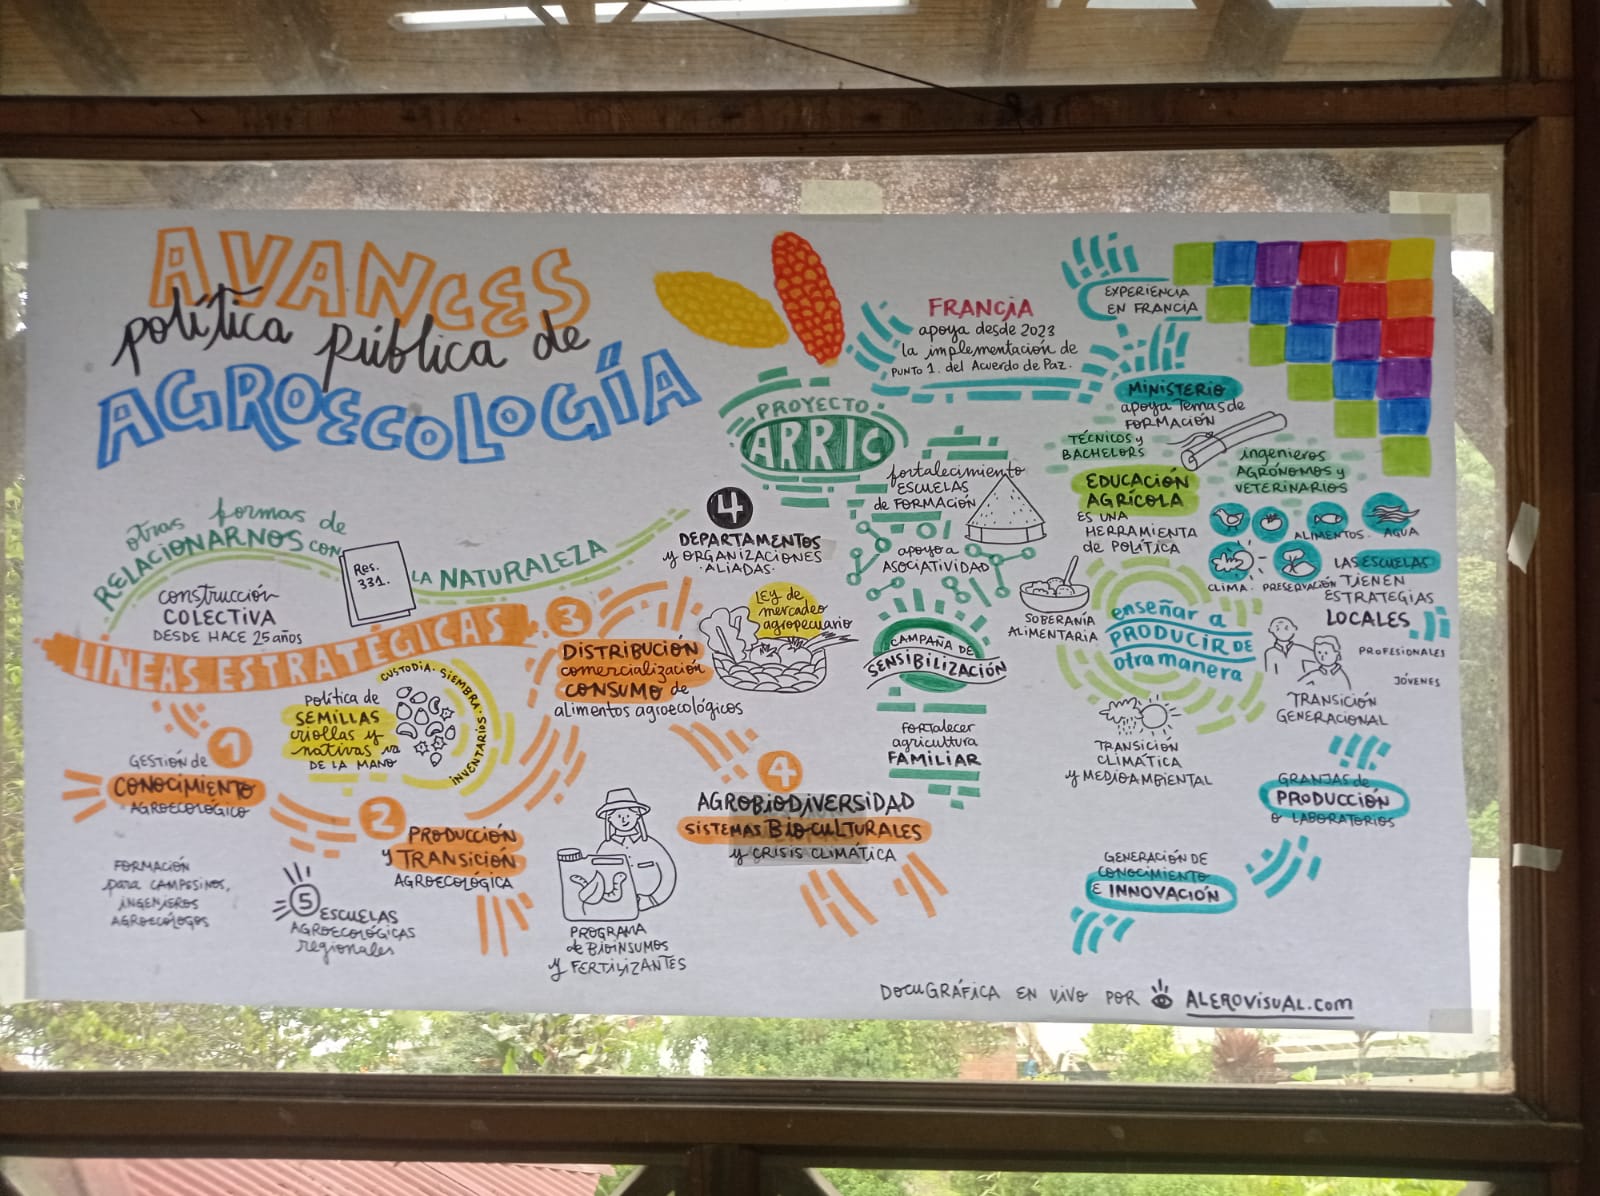 AVANCES
política pública de
AGROECOLOGÍA
otras formas de
RELACIONARNOS CON
LA NATURALEZA
Res.
331.
construcción
COLECTIVA
DESDE HACE 25 años
LÍNEAS ESTRATÉGICAS
1
GESTIÓN de
CONOCIMIENTO
AGROECOLÓGICO
FORMACIÓN
para CAMPESINOS,
INGENIEROS
AGROECÓLOGOS
Política de
SEMILLAS
criollas y
nativas va
DE LA MANO
CUSTODIA. SIEMBRA.
INVENTARIOS
2
PRODUCCIÓN
y TRANSICIÓN
AGROECOLÓGICA
5
ESCUELAS
AGROECOLÓGICAS
regionales
PROGRAMA
de BIOINSUMOS
y FERTILIZANTES
3
DISTRIBUCIÓN
comercialización
CONSUMO de
alimentos agroecológicos
LEY de
mercadeo
agropecuario
4
AGROBIODIVERSIDAD
SISTEMAS BIOCULTURALES
y CRISIS CLIMÁTICA
PROYECTO
ARRIC
4
DEPARTAMENTOS
y ORGANIZACIONES
ALIADAS.
FRANCIA
apoya desde 2023
la implementación de
PUNTO 1. del Acuerdo de Paz.
fortalecimiento
ESCUELAS
de FORMACIÓN
apoyo a
ASOCIATIVIDAD
CAMPAÑA DE
SENSIBILIZACIÓN
FORTALECER
agricultura
FAMILIAR
EXPERIENCIA
EN FRANCIA
MINISTERIO
apoya Temas de
FORMACIÓN
TÉCNICOS y
BACHELORS
ingenieros
AGRÓNOMOS y
VETERINARIOS
EDUCACIÓN
AGRÍCOLA
ES UNA
HERRAMIENTA
de POLÍTICA
ALIMENTOS. AGUA
CLIMA. PRESERVACIÓN
LAS ESCUELAS
TIENEN
ESTRATEGIAS
LOCALES
SOBERANÍA
ALIMENTARIA
enseñar a
PRODUCIR DE
otra manera
PROFESIONALES
JÓVENES
TRANSICIÓN
GENERACIONAL
TRANSICIÓN
CLIMÁTICA
y MEDIOAMBIENTAL
GRANJAS de
PRODUCCIÓN
O LABORATORIOS
GENERACIÓN DE
CONOCIMIENTO
E INNOVACIÓN
DOCUGRÁFICA EN VIVO POR ALEROVISUAL.com